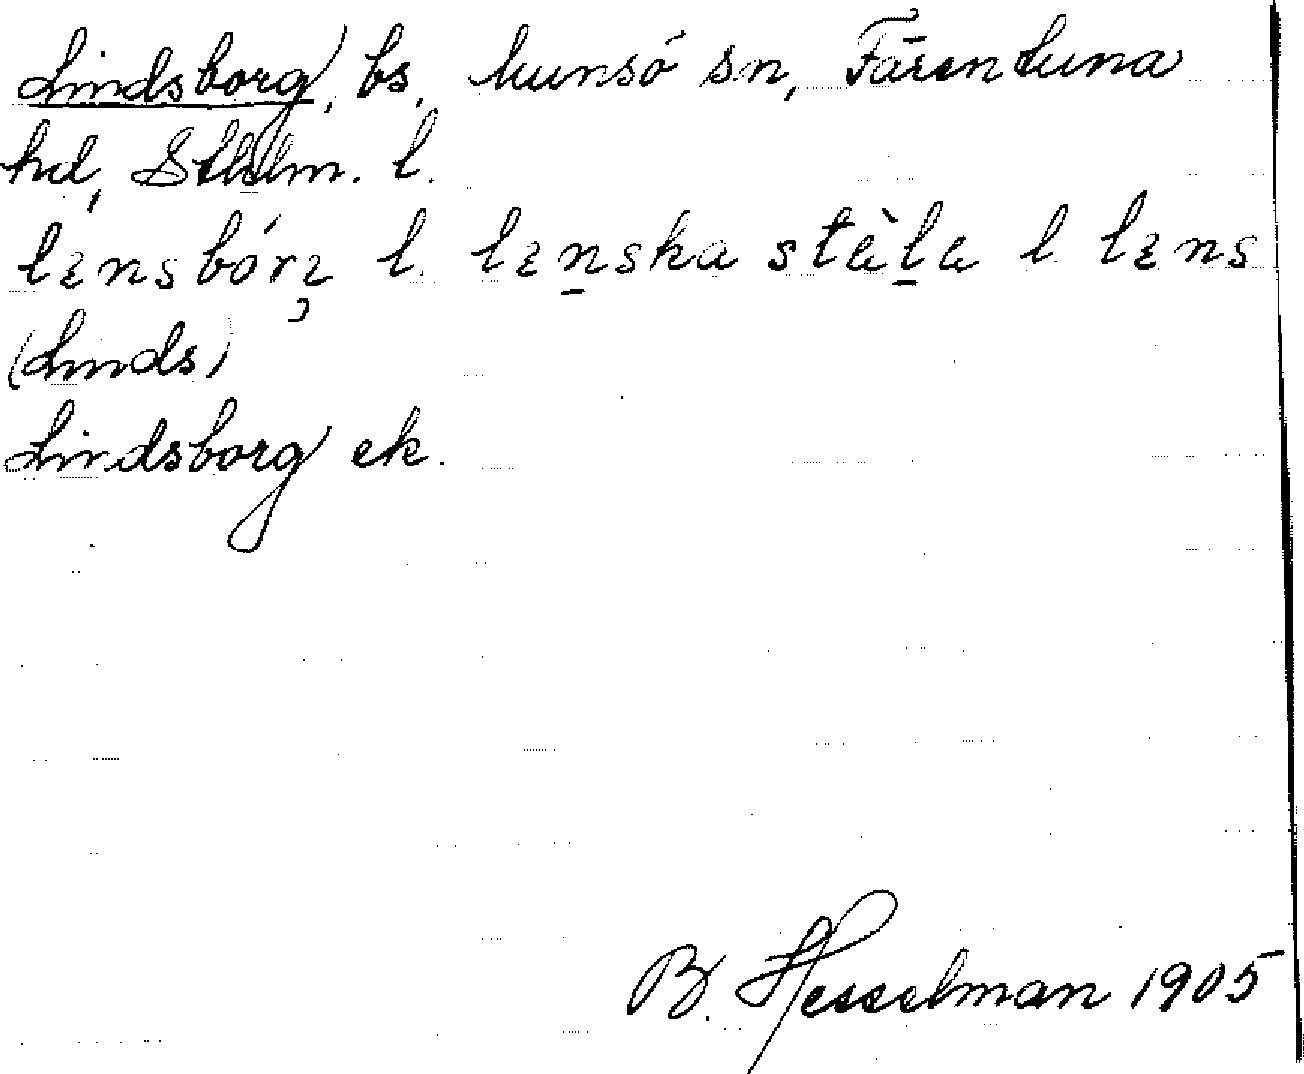 Lindsborg, bs, Munsö sn, Färentuna
hd, Sthlm. l.
lɛnsbórɜ l. lɛnska stɑ̀la l lɛns
(Linds)
Lindsborg ek.
B. Hesselman 1905